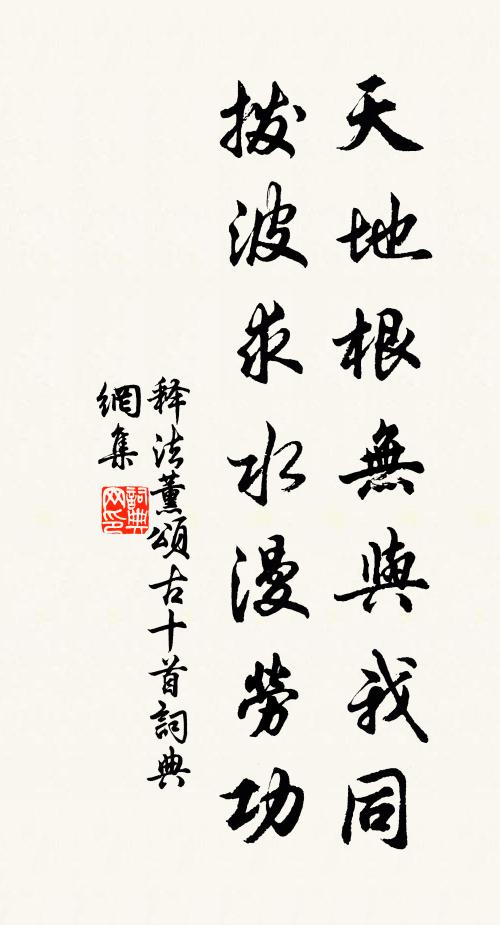 天地根無與我同
撥波求水漫勞功
释法薰頌古十首詞典
網集
詞典
网印